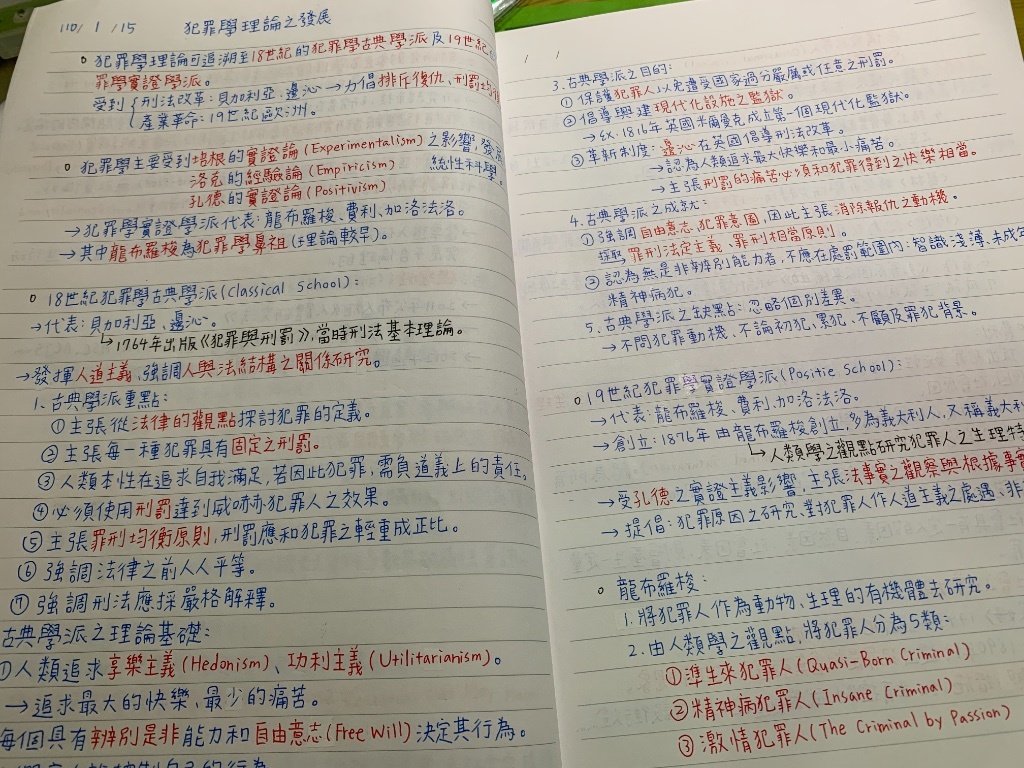 110/ 1 /15 犯罪學理論之發展
○ 犯罪學理論可追溯至18世紀的犯罪學古典學派及19世紀
罪學實證學派。
受到 { 刑法改革:貝加利亞、邊沁→力倡排斥復仇、刑罰
產業革命:19世紀歐洲。
○ 犯罪學主要受到培根的實證論(Experimentalism)之影響,發展
洛克的經驗論(Empiricism) 統性科學。
孔德的實證論(Positivism)
→犯罪學實證學派代表:龍布羅梭、費利、加洛法洛。
→其中龍布羅梭為犯罪學鼻祖(理論較早)。
○ 18世紀犯罪學古典學派(Classical School):
→代表:貝加利亞、邊沁。
↳1764年出版《犯罪與刑罰》,當時刑法基本理論。
→發揮人道主義、強調人與法結構之關係研究。
1. 古典學派重點:
① 主張從法律的觀點探討犯罪的定義。
② 主張每一種犯罪具有固定之刑罰。
③ 人類本性在追求自我滿足,若因此犯罪,需負道義上的責任。
④ 必須使用刑罰達到威嚇犯罪人之效果。
⑤ 主張罪刑均衡原則,刑罰應和犯罪之輕重成正比。
⑥ 強調法律之前人人平等。
⑦ 強調刑法應採嚴格解釋。
古典學派之理論基礎:
①人類追求享樂主義(Hedonism)、功利主義(Utilitarianism)。
→追求最大的快樂、最少的痛苦。
每個具有辨別是非能力和自由意志(Free Will)決定其行為。
/ /
3. 古典學派之目的:
① 保護犯罪人以免遭受國家過分嚴厲或任意之刑罰。
② 倡導興建現代化設施之監獄。
→ex. 1816年英國米爾曼克成立第一個現代化監獄。
③ 革新制度:邊沁在英國倡導刑法改革。
→認為人類追求最大快樂和最小痛苦。
→主張刑罰的痛苦必須和犯罪得到之快樂相當。
4. 古典學派之成就:
① 強調自由意志、犯罪意圖,因此主張消除報仇之動機。
採取罪刑法定主義、罪刑相當原則。
② 認為無是非辨別能力者,不應在處罰範圍內:智識淺薄、未成年
精神病犯。
5. 古典學派之缺點:忽略個別差異。
→不問犯罪動機、不論初犯、累犯、不顧及罪犯背景。
○19世紀犯罪學實證學派(Positie School):
→代表:龍布羅梭、費利、加洛法洛。
→創立:1876年由龍布羅梭創立,多為義大利人,又稱義大利
↳人類學之觀點研究犯罪人之生理特
→受孔德之實證主義影響,主張法事實之觀察與根據事實
→提倡:犯罪原因之研究、對犯罪人作人道主義之處遇、非
○ 龍布羅梭:
1. 將犯罪人作為動物、生理的有機體去研究。
2. 由人類學之觀點,將犯罪人分為5類:
①準生來犯罪人(Quasi-Born Criminal)
②精神病犯罪人(Insane Criminal)
③激情犯罪人(The Criminal by Passion)